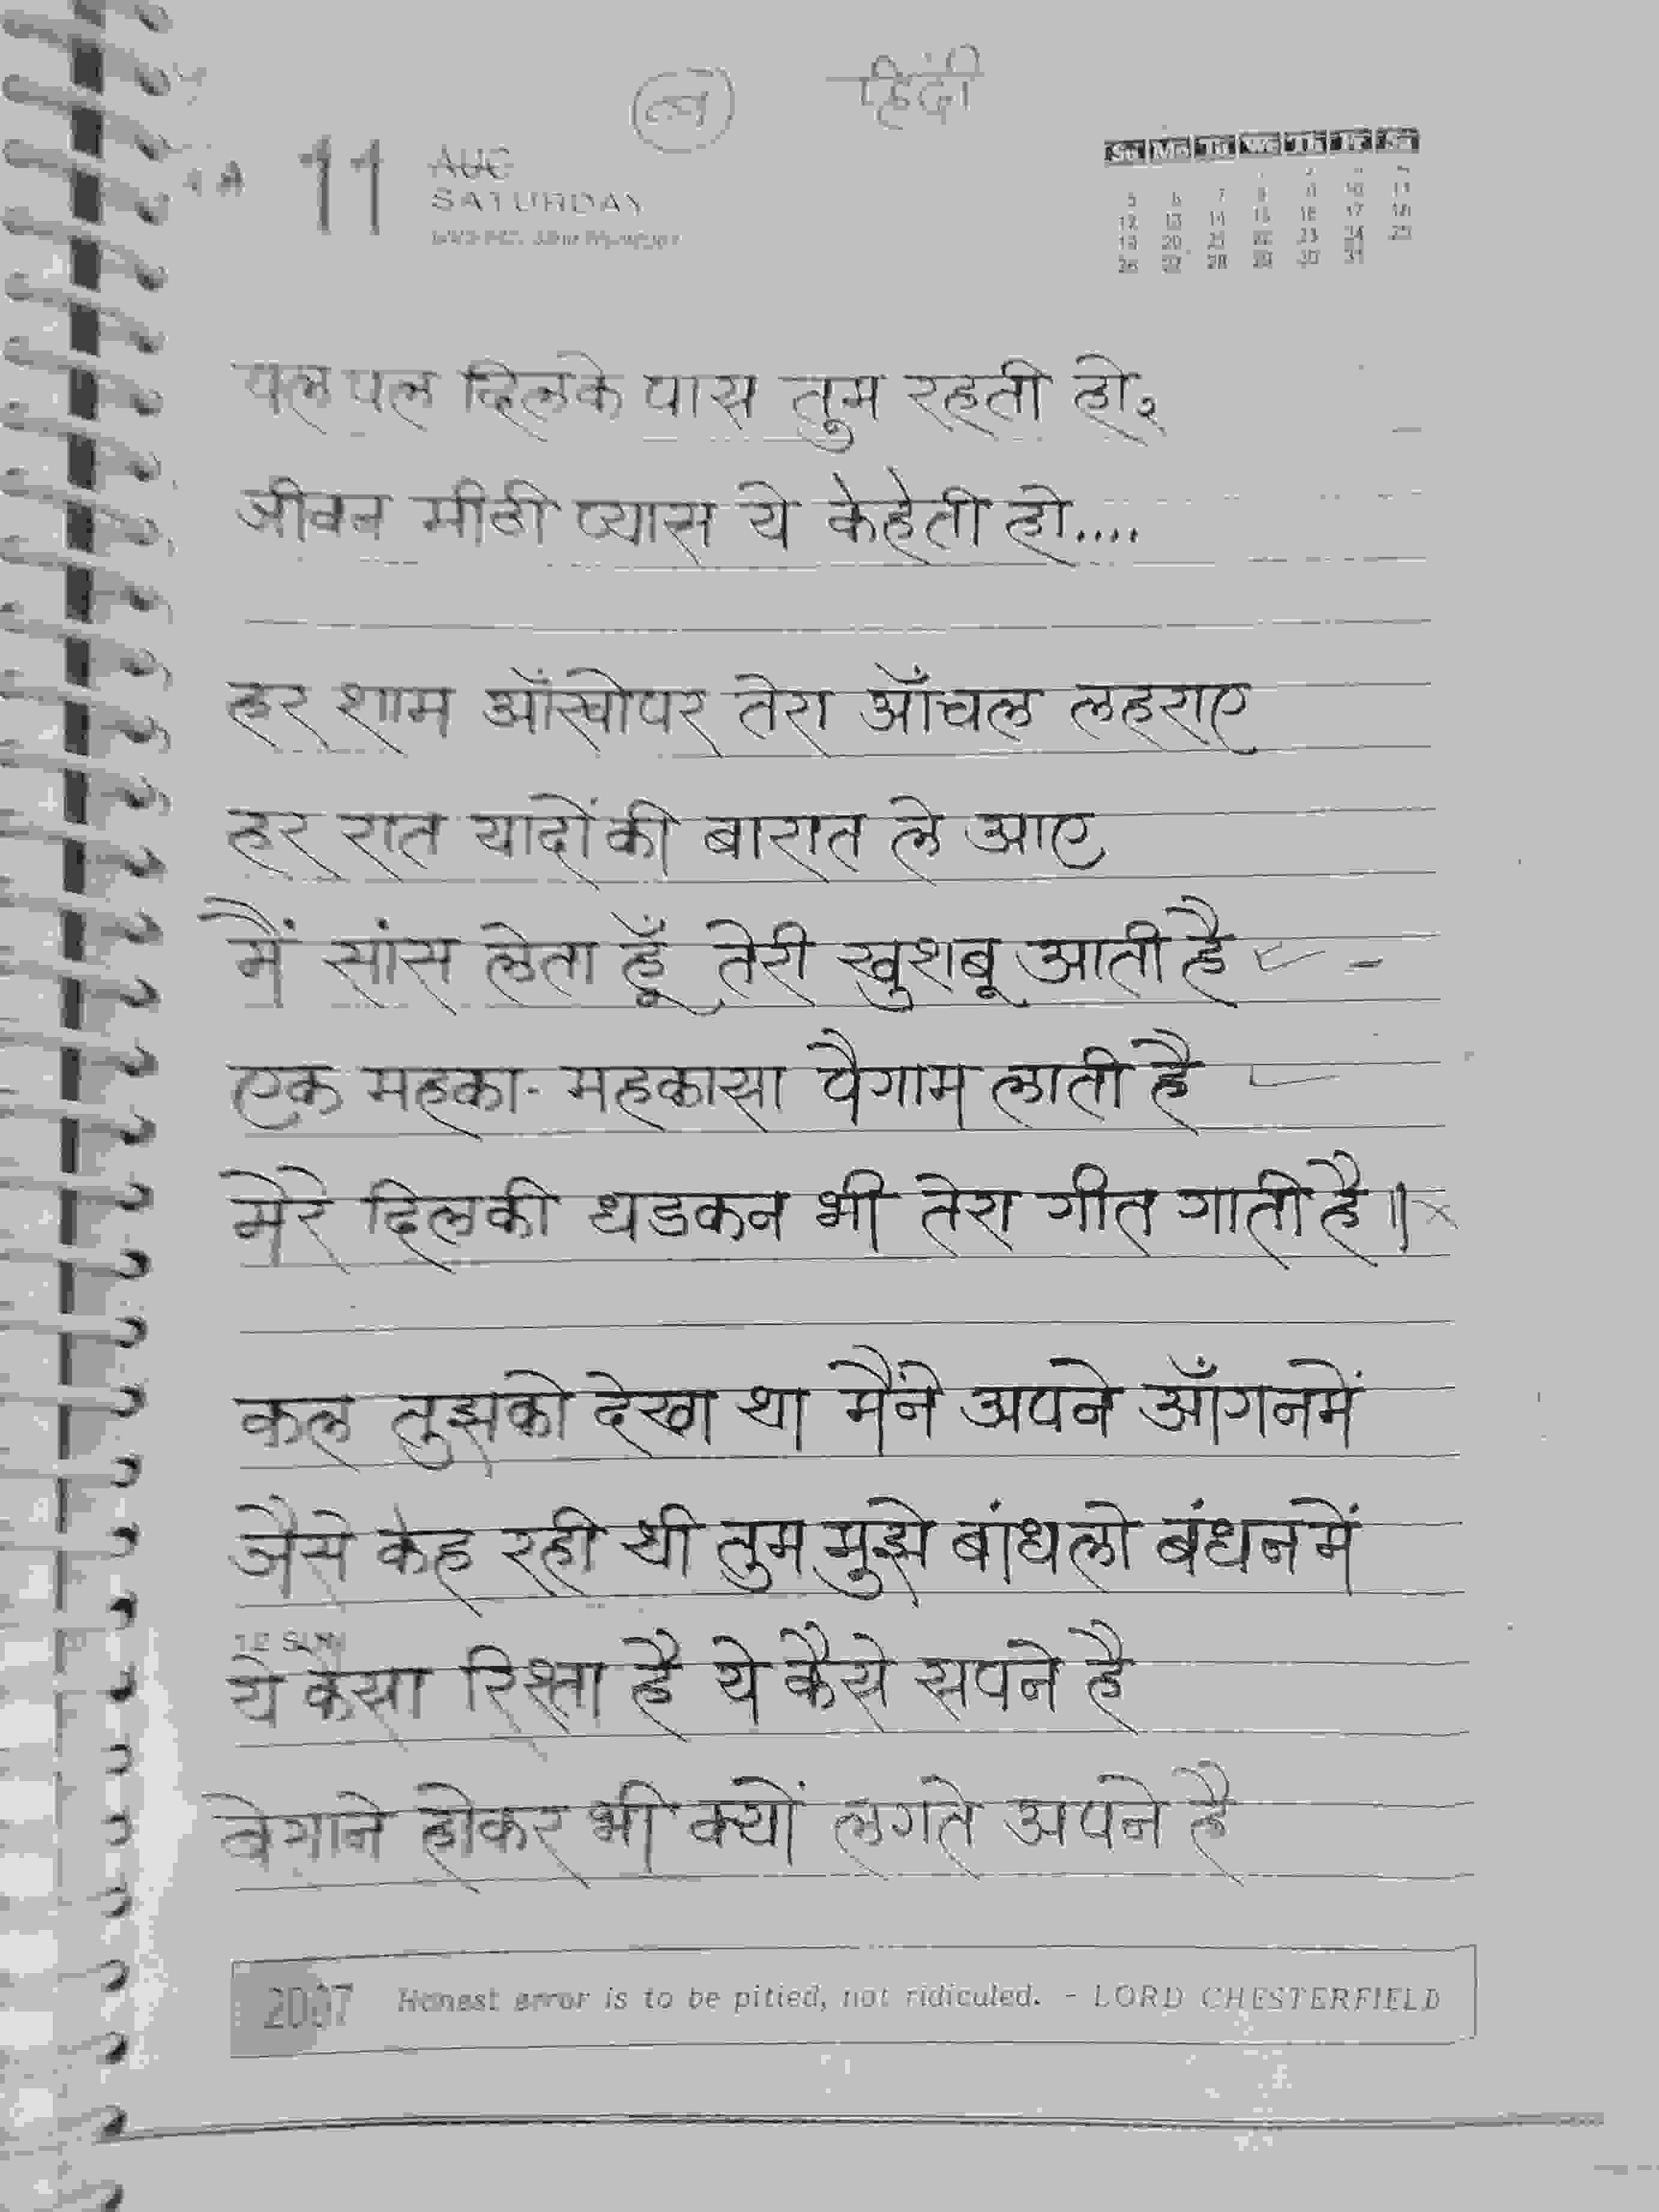 हिंदी
11 AUG
SATURDAY
Su Mo Tu We Th Fr Sa
5 6 7 8 9 10 11
12 13 14 15 16 17 18
19 20 21 22 23 24 25
26 27 28 29 30 31
पल पल दिलके पास तुम रहती हो २
जीवन मीठी प्यास ये केहेती हो....
हर शाम आँखोपर तेरा आँचल लहराए
हर रात यादोंकी बारात ले आए
मैं सांस लेता हूँ तेरी खुशबू आती है
एक महका- महकासा पैगाम लाती है
मेरे दिलकी धडकन भी तेरा गीत गाती है ॥
कल तुझको देखा था मैंने अपने आँगनमें
जैसे केह रही थी तुम मुझे बांधलो बंधनमें
12 SUN
ये कैसा रिश्ता है ये कैसे सपने है
बेगाने होकर भी क्यों लगते अपने है
2007 Honest error is to be pitied, not ridiculed. - LORD CHESTERFIELD